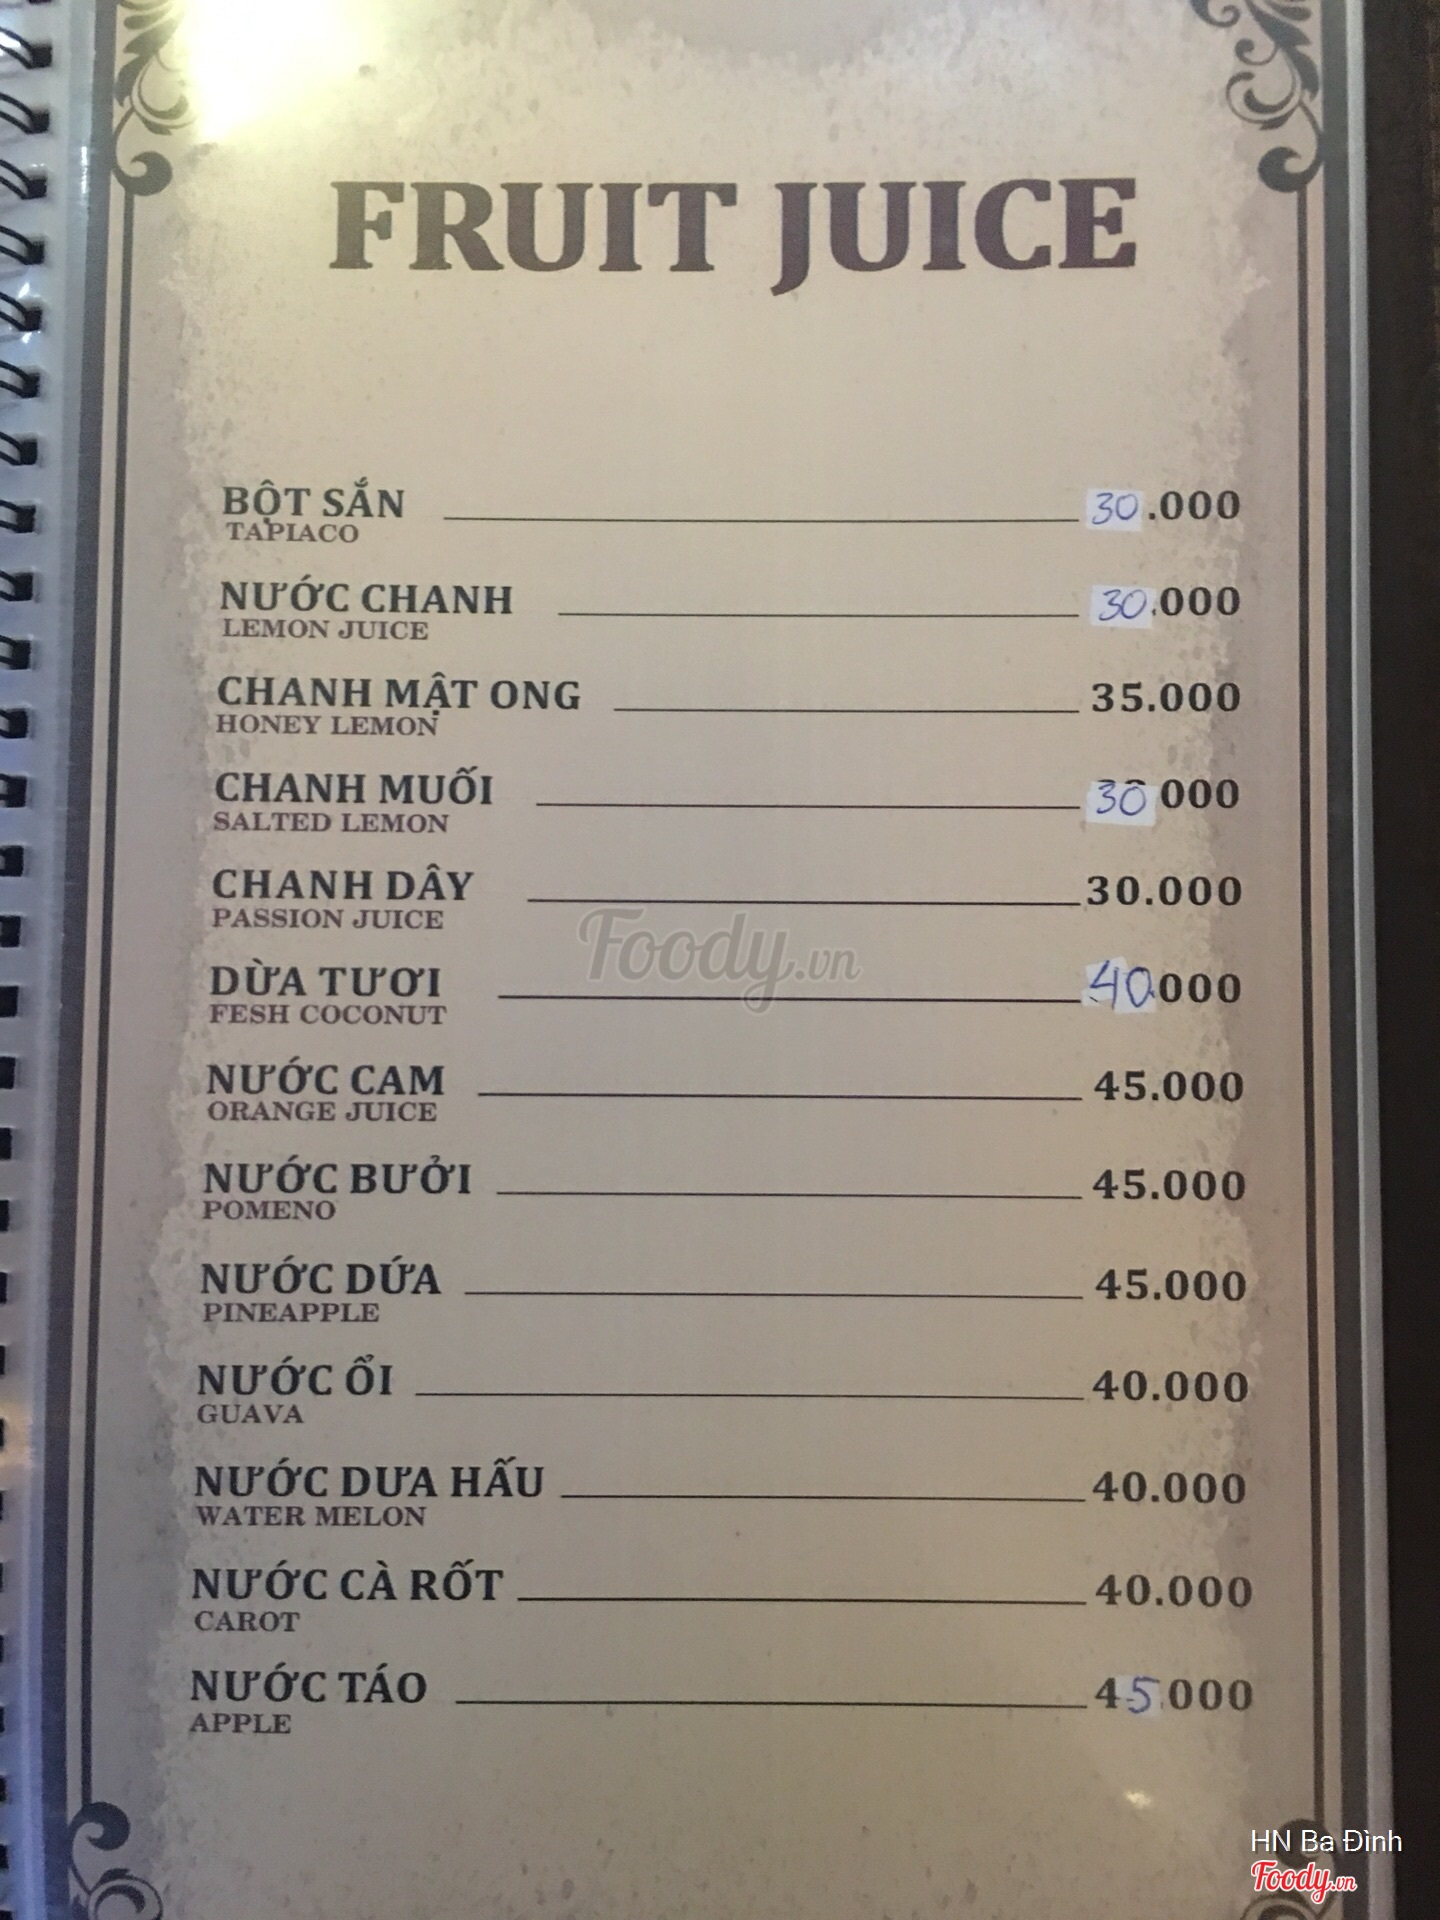 FRUIT JUICE
BỘT SẮN 30.000
TAPIACO
NƯỚC CHANH 30.000
LEMON JUICE
CHANH MẬT ONG 35.000
HONEY LEMON
CHANH MUỐI 30 000
SALTED LEMON
CHANH DÂY 30.000
PASSION JUICE
Foody.vn
DỪA TƯƠI 40.000
FESH COCONUT
NƯỚC CAM 45.000
ORANGE JUICE
NƯỚC BƯỞI 45.000
POMENO
NƯỚC DỨA 45.000
PINEAPPLE
NƯỚC ỔI 40.000
GUAVA
NƯỚC DƯA HẤU 40.000
WATER MELON
NƯỚC CÀ RỐT 40.000
CAROT
NƯỚC TÁO 45.000
APPLE
HN Ba Đình
Foody.vn